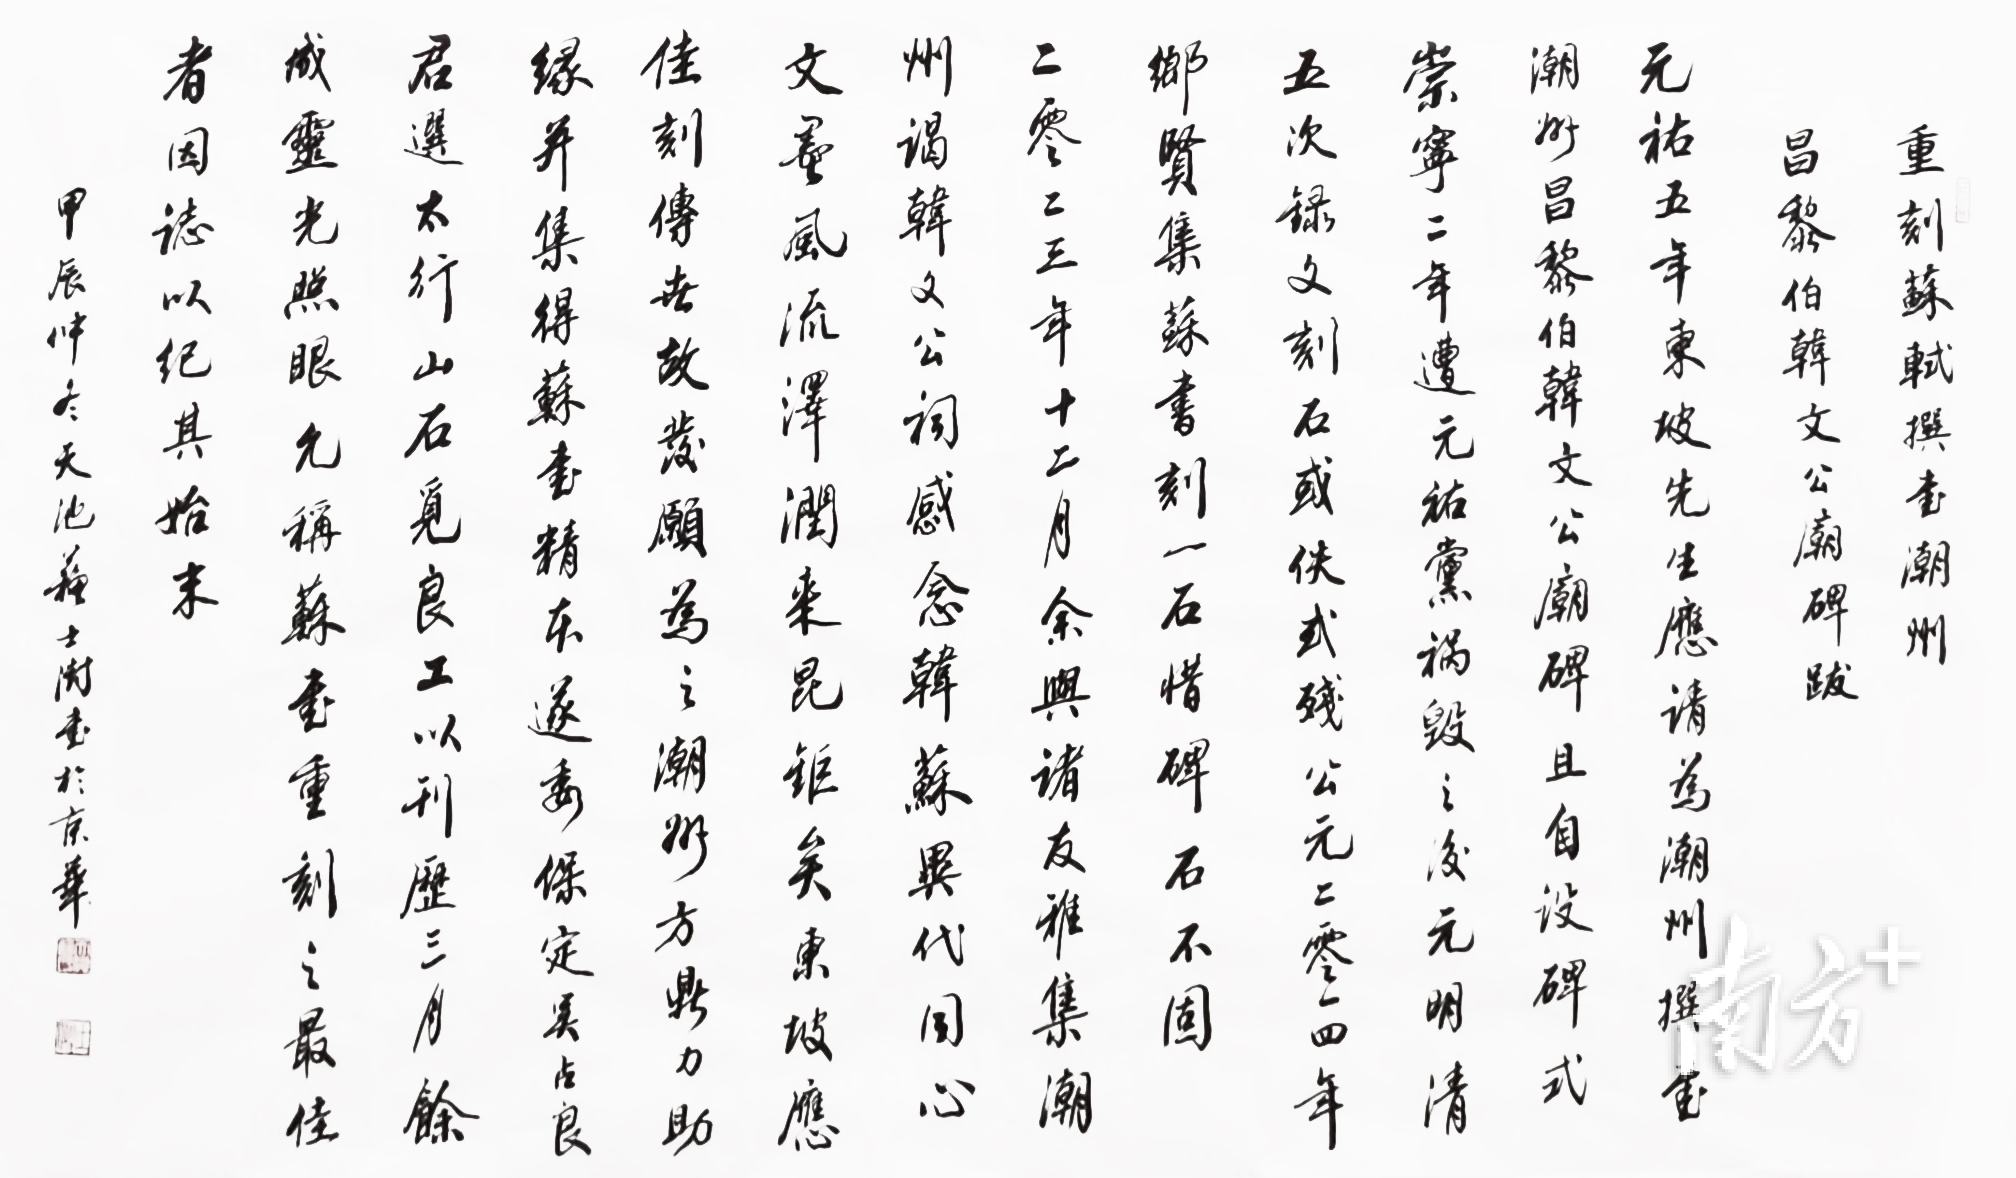 重刻蘇軾撰書潮州
昌黎伯韓文公廟碑跋
元祐五年東坡先生應请為潮州撰書
潮州昌黎伯韓文公廟碑且自设碑式
崇寧二年遭元祐黨禍毁之後元明清
五次録文刻石或佚或殘公元二零一四年
鄉賢集蘇書刻一石惜碑石不固
二零二三年十二月余與诸友雅集潮
州謁韓文公祠感念韓蘇異代同心
文墨風流澤潤来昆鉅矣東坡應
佳刻傳世故發願為之潮州方鼎力助
緣并集得蘇書精本遂委保定吴占良
君選太行山石覓良工以刊歷三月餘
成靈光照眼允稱蘇書重刻之最佳
者因誌以纪其始末
甲辰仲冬天池蘇士澍書於京華
南方+